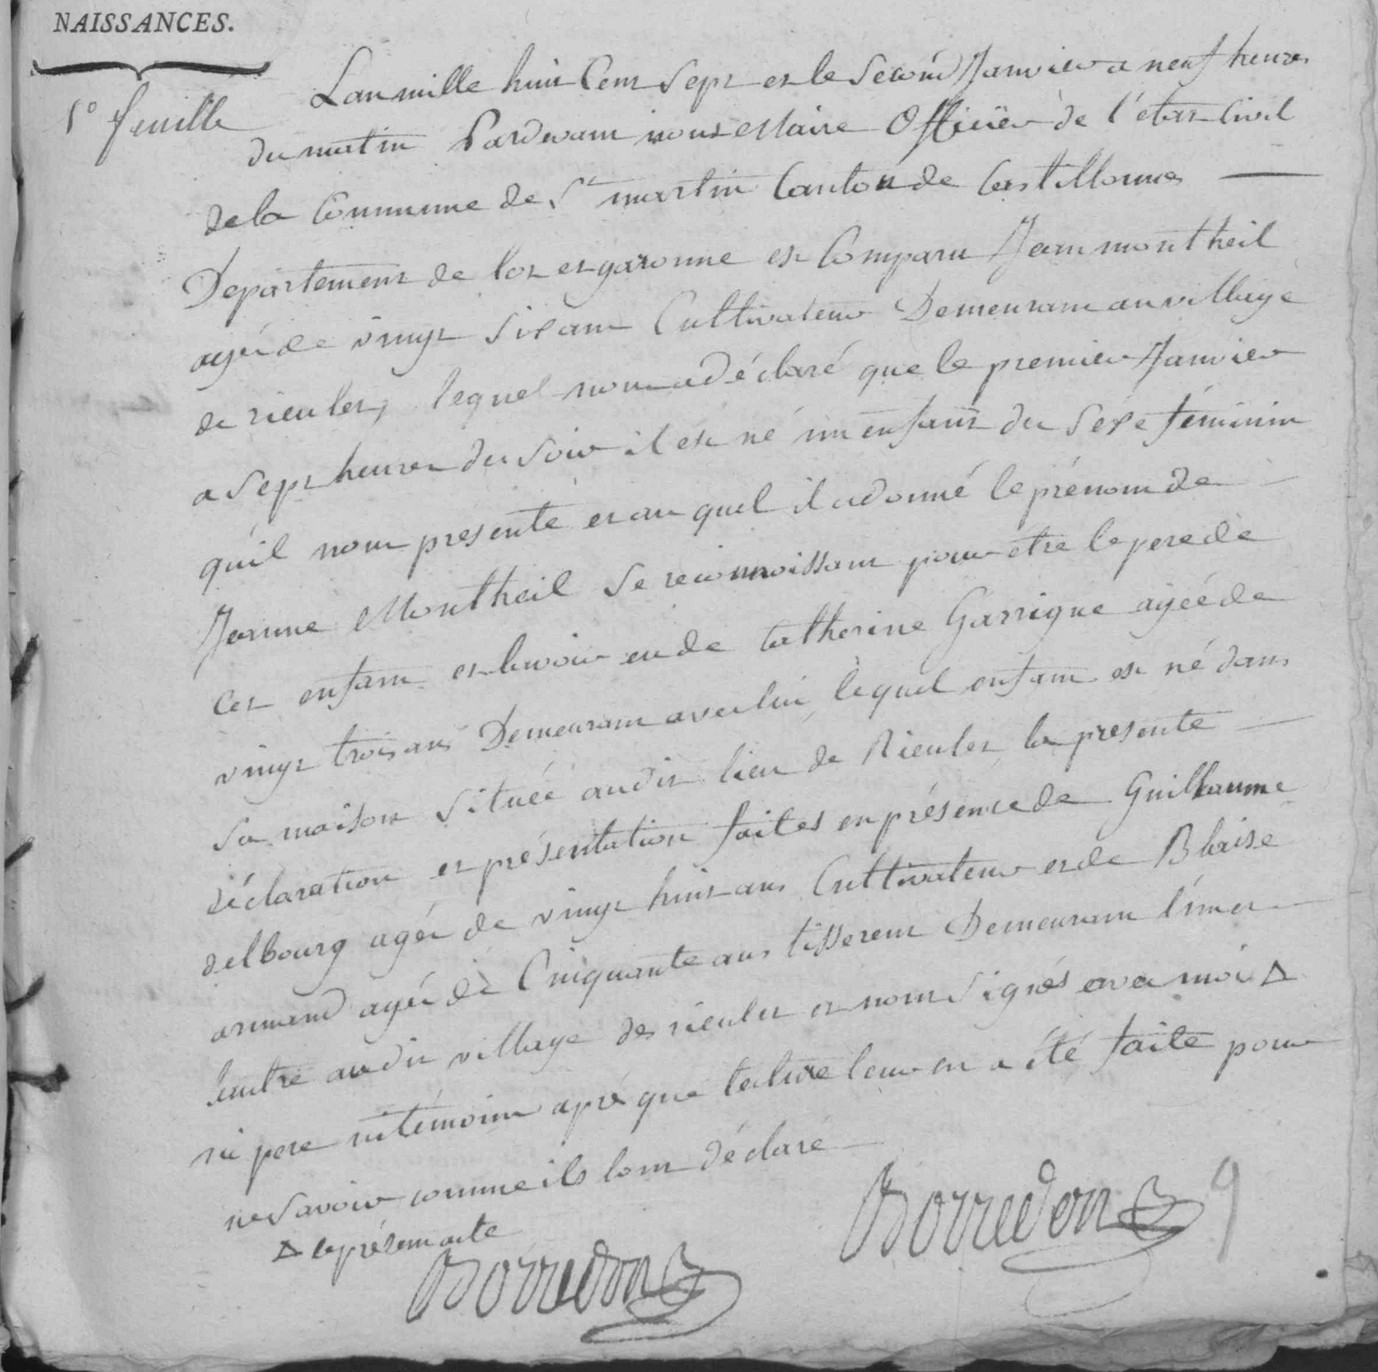 NAISSANCES.
1º feuille
Lan mille huit Cent Sept et le Second Janvier a neuf heures
du matin Pardevant nous Maire Officier de l'état Civil
de la Commune de St martin Canton de Castillonnes
Departement de lot et garonne est Comparu Jean montheil
agé de vingt Six ans Cultivateur Demeurant au village
de rieulet, lequel nous a déclaré que le premier Janvier
a Sept heures du Soir il est né un enfant du Sexe féminin
qu'il nous presenté et au quel il a donné le prénom de
Jeanne Montheil Se reconnoissant pour être le pere de
cet enfant et lavoir eu de Catherine Garrigue agée de
vingt trois ans Demeurant avec lui, lequel enfant est né dans
Sa maison Située audit lieu de Rieulet la presente
déclaration et présentation faites en présence de Guillaume
delbourg agée de vingt huit ans Cultivateur et de Blaise
armand agé de Cinquante ans tisserent Demeurant l'un et
lautre audit village de rieulet et nont Signés avec moi Δ
ni pere ni témoins aprés que lecture leur en a été faite pour
ne Savoir comme ils lont déclaré
Δ le présent acte
Borredon
Borredon
9